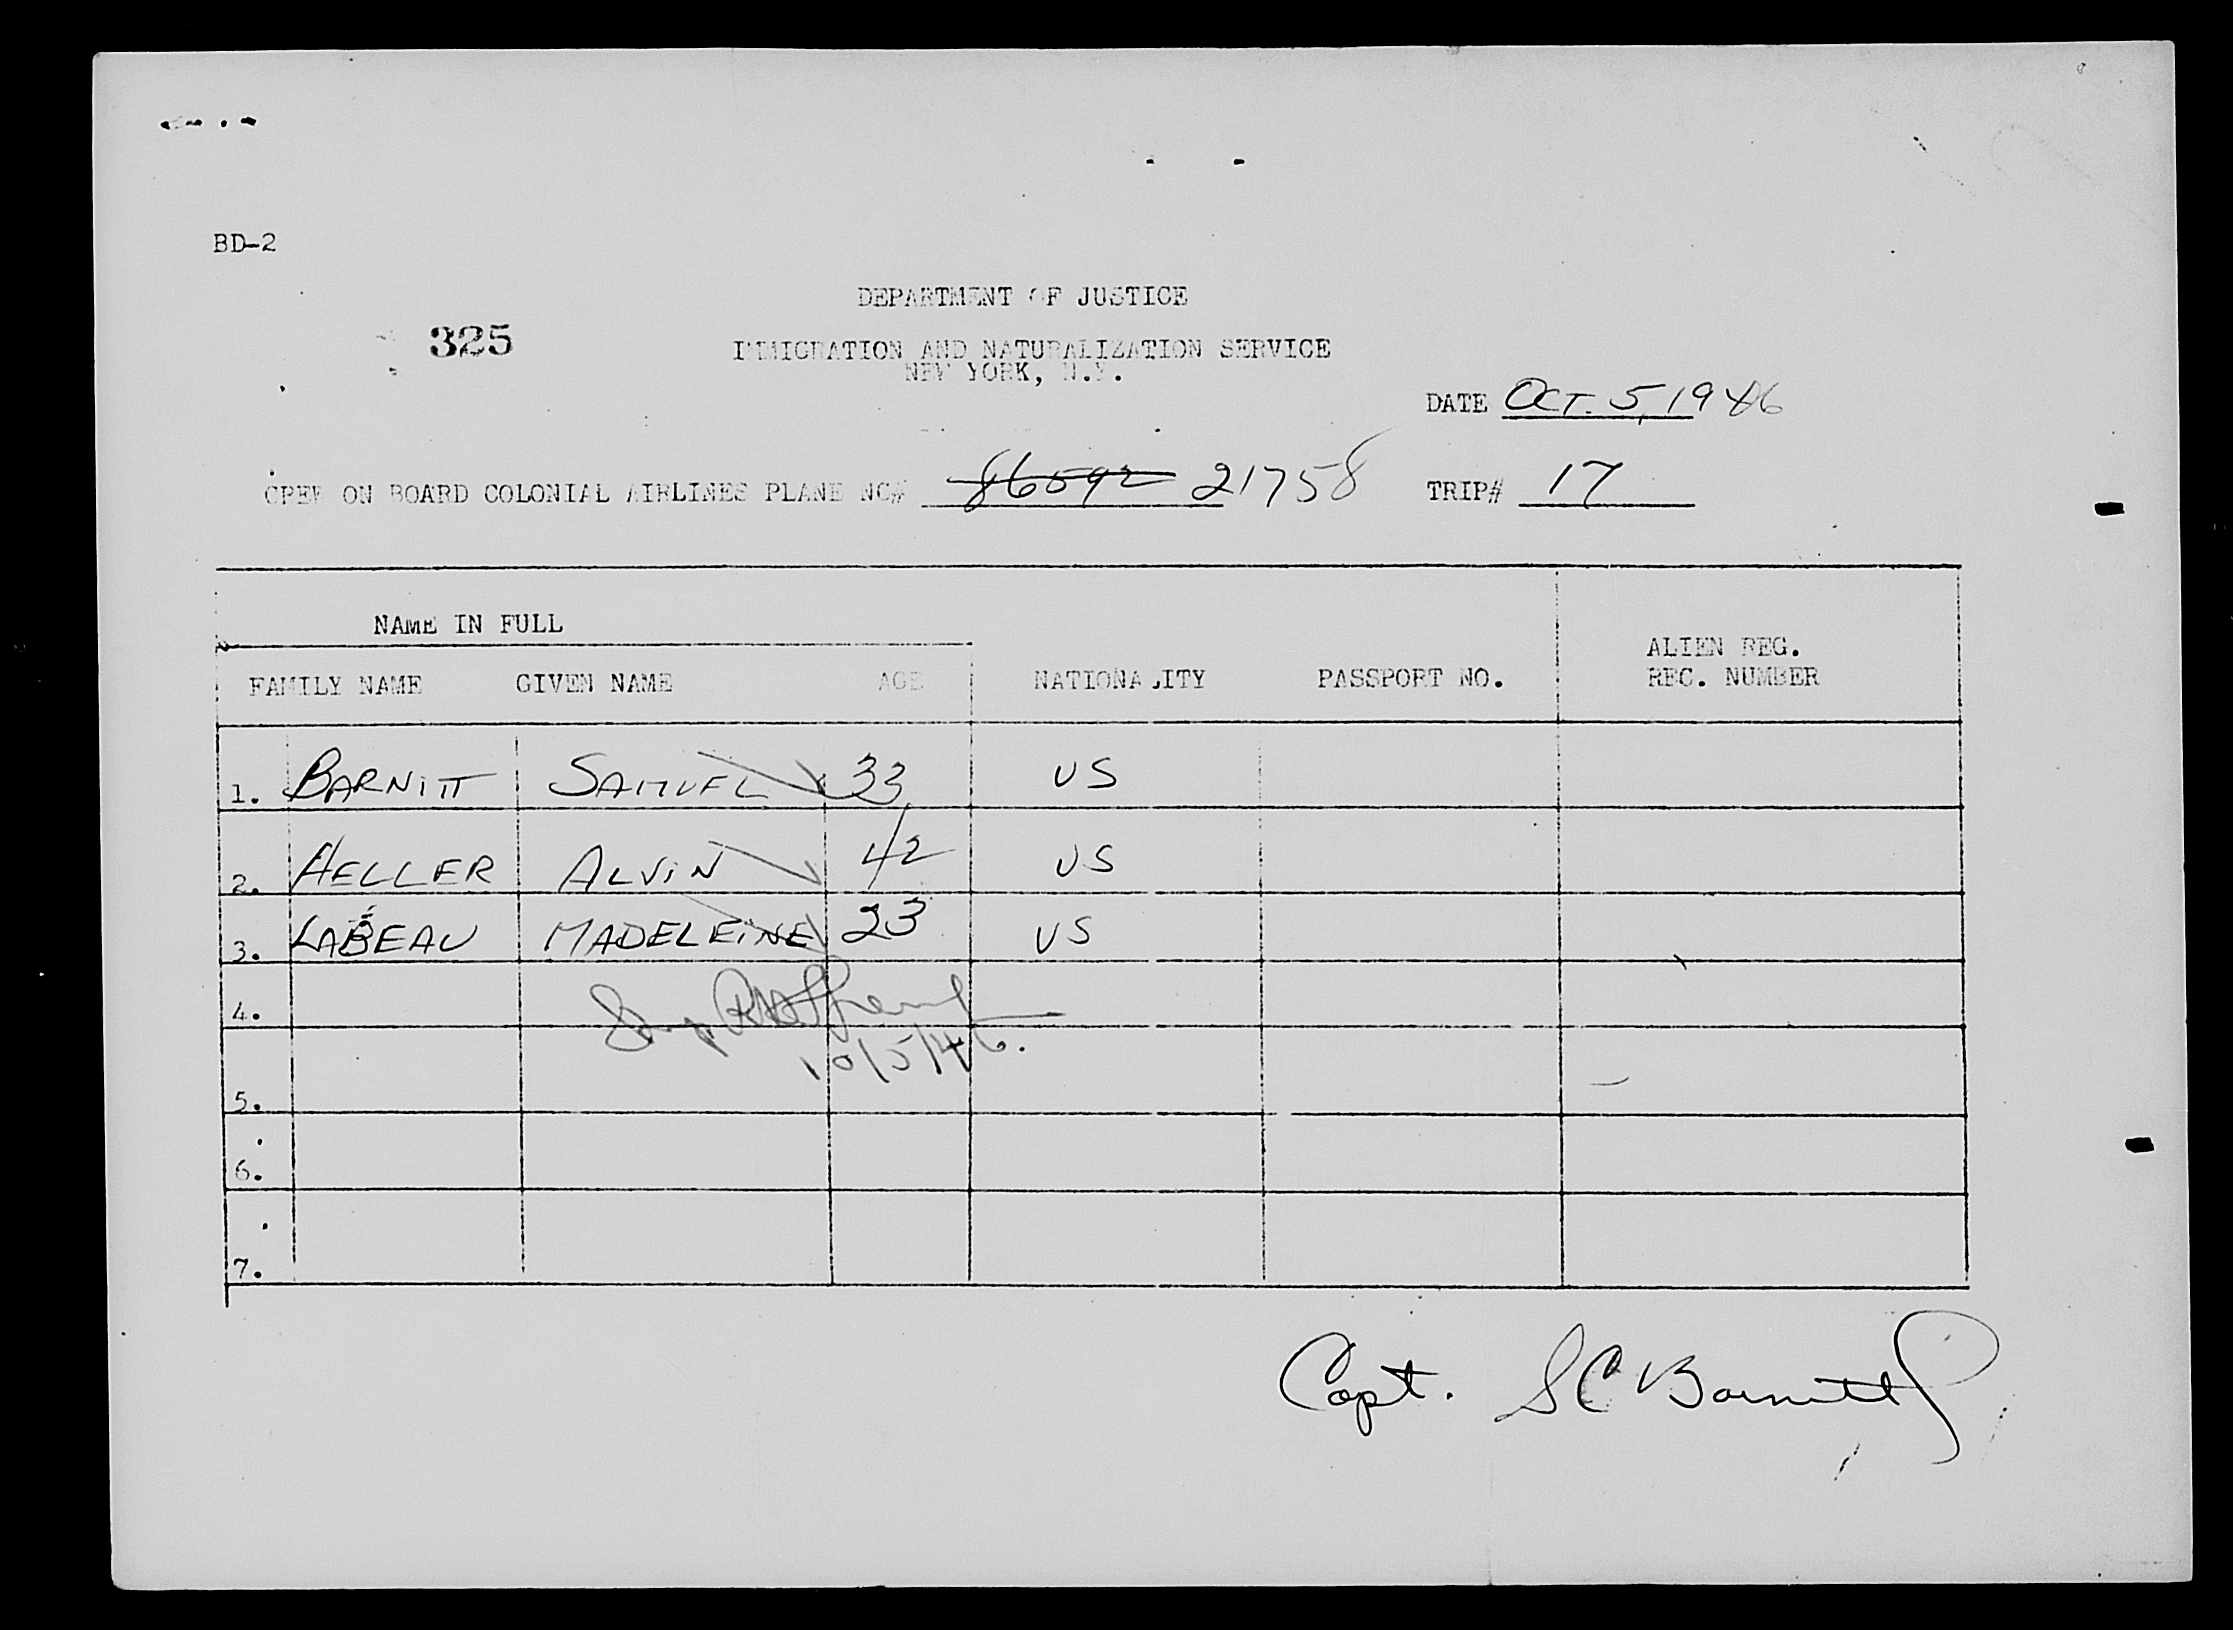 BD-2
DEPARTMENT OF JUSTICE
325
IMMIGRATION AND NATURALIZATION SERVICE
NEW YORK, N.Y.
DATE OCT. 5, 1946
CREW ON BOARD COLONIAL AIRLINES PLANE NC# 86592 21758 TRIP# 17
NAME IN FULL
FAMILY NAME GIVEN NAME AGE NATIONALITY PASSPORT NO. ALIEN REG. REC. NUMBER
1. BARNITT SAMUEL 33 US
2. HELLER ALVIN 42 US
3. LABEAU MADELEINE 23 US
4.
10/5/46.
5.
6.
7.
Capt. S C Barnitt